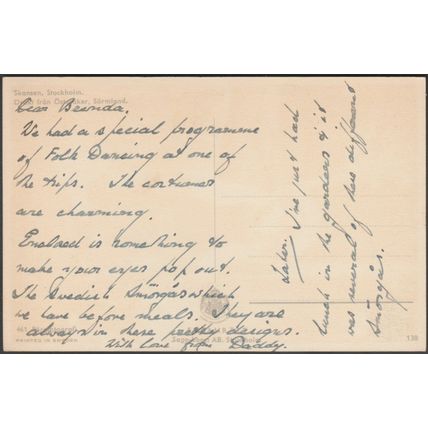 Skansen, Stockholm.
från Österåker, Sörmland.
Dear Beninda.
We had a special programme
of Folk Dancing at one of
the trips. The costumes
are charming.
Enclosed is something to
make your eyes pop out.
The Swedish Smörgås which
we have before meals. They are
always in these pretty designs.
With love from Daddy.
PRINTED IN SWEDEN
AB. Stockholm
138
Later. I've just had
lunch in the gardens & it
was several of these different
Smörgås.